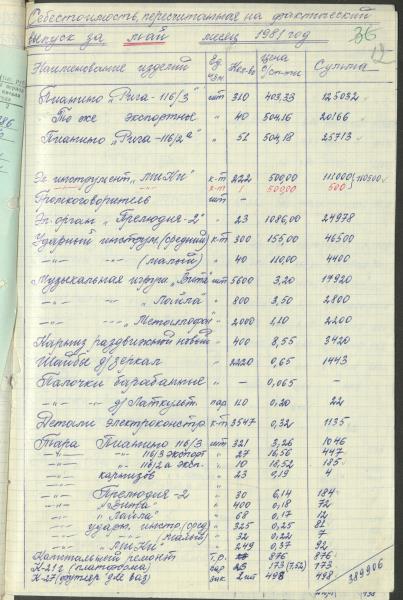 Себестоимость, пересчитанная на фактический
выпуск за май месяц 1981 год 36
Наименование изделий ед. изм. Кол-во Цена с/ст-ти Сумма
Пианино „Рига-116/3" шт 310 403,33 125032
То же экспортные " 40 504,16 20166
Пианино „Рига-116/2а" " 51 504,18 25713
Эл. инструмент „МиКи" к-т 222 500,00 111000 110500
к-т 1 500,00 500
Громкоговоритель шт –
Эл. орган „Прелюдия-2" " 23 1086,00 24978
Ударный инструм (средний) к-т 300 155,00 46500
–"– –"– (малый) " 40 110,00 4400
Музыкальная игруш „Бита" шт 5600 3,20 17920
–"– –"– „Лайла" " 800 3,50 2800
–"– –"– „Металлофон" " 2000 1,10 2200
Карниз раздвижной новый " 400 8,55 3420
Шайбы д/зеркал " 2220 0,65 1443
Палочки барабанные " – 0,065 –
–"– д/Латкульт. пар 110 0,20 22
Детали электроконстр к-т 3547 0,32 1135
Тара Пианино 116/3 шт 321 3,26 1046
–"– –"– 116/3 экспорт " 27 16,56 447
–"– 116/2а эксп. " 10 18,52 185
–"– карнизов " 23 0,19 4
–"– Прелюдия-2 " 30 6,14 184
–"– „Бита" " 400 0,18 72
–"– „Лайла" " 68 0,17 12
–"– ударн. инстр. (сред) " 325 0,25 81
–"– (малый) " 32 0,22 7
–"– „МиКи" " 249 0,37 92
Капитальный ремонт т.р. 876 876
К-21г (платформа) 173 (7,52) 173
К-27 (футляр для ваз) 2шт 498 498
389906